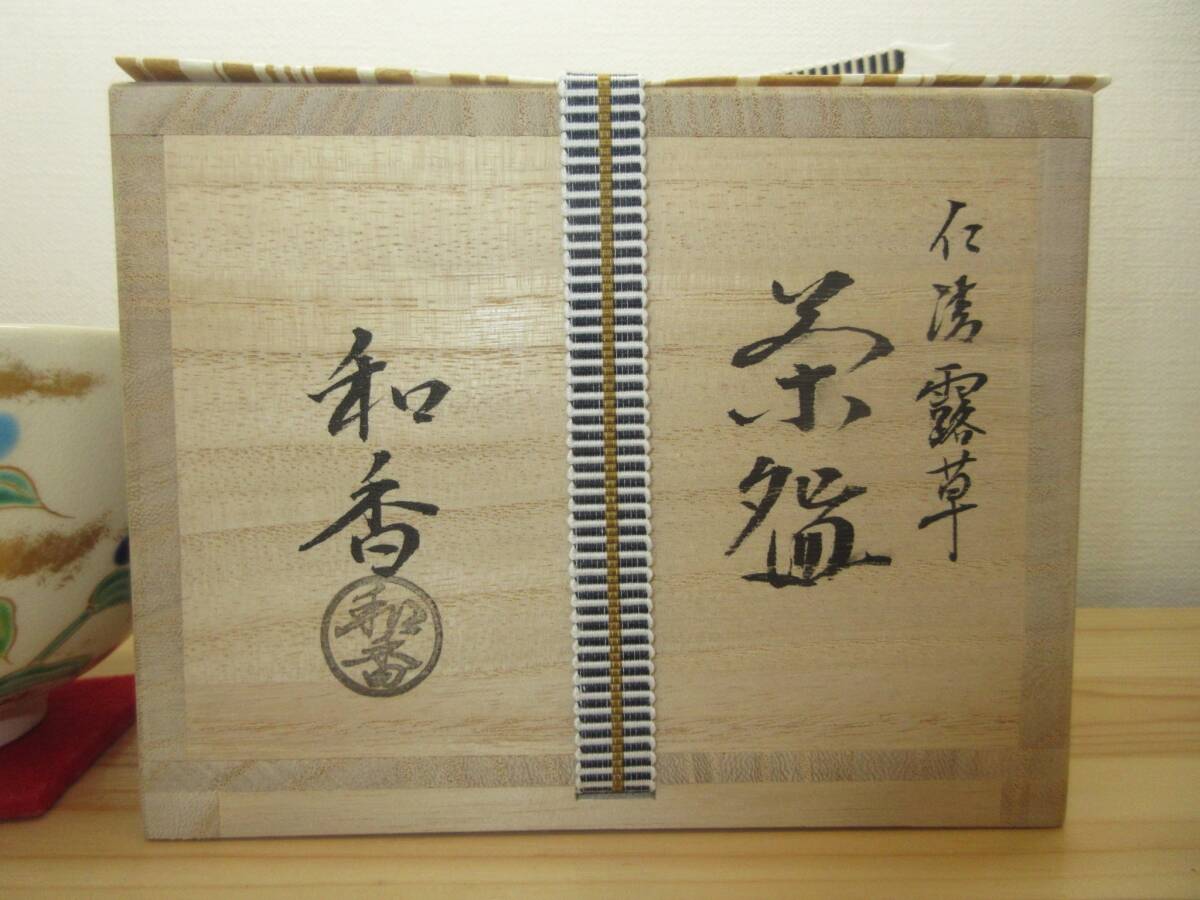 仁清露草
茶盌
和香
和香